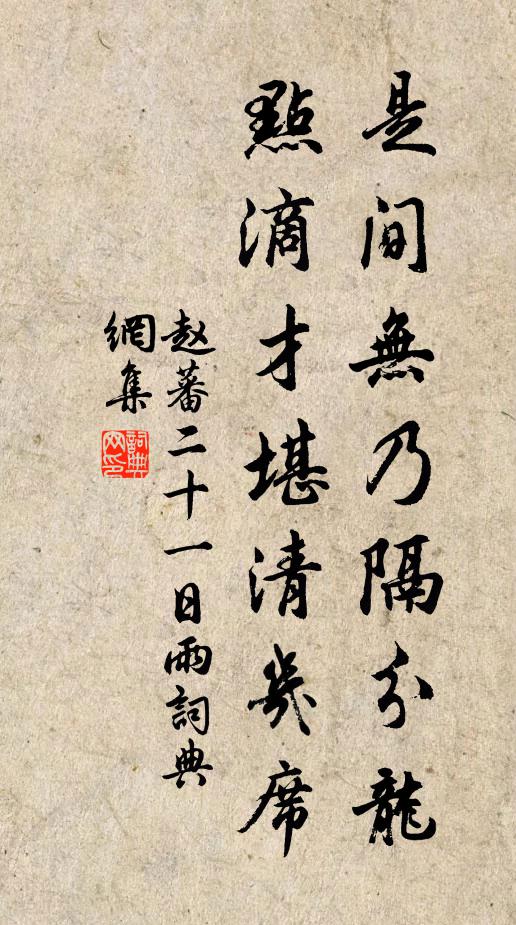 是间無乃隔分龍
點滴才堪清几席
赵蕃二十一日雨詞典
網集
詞典网印